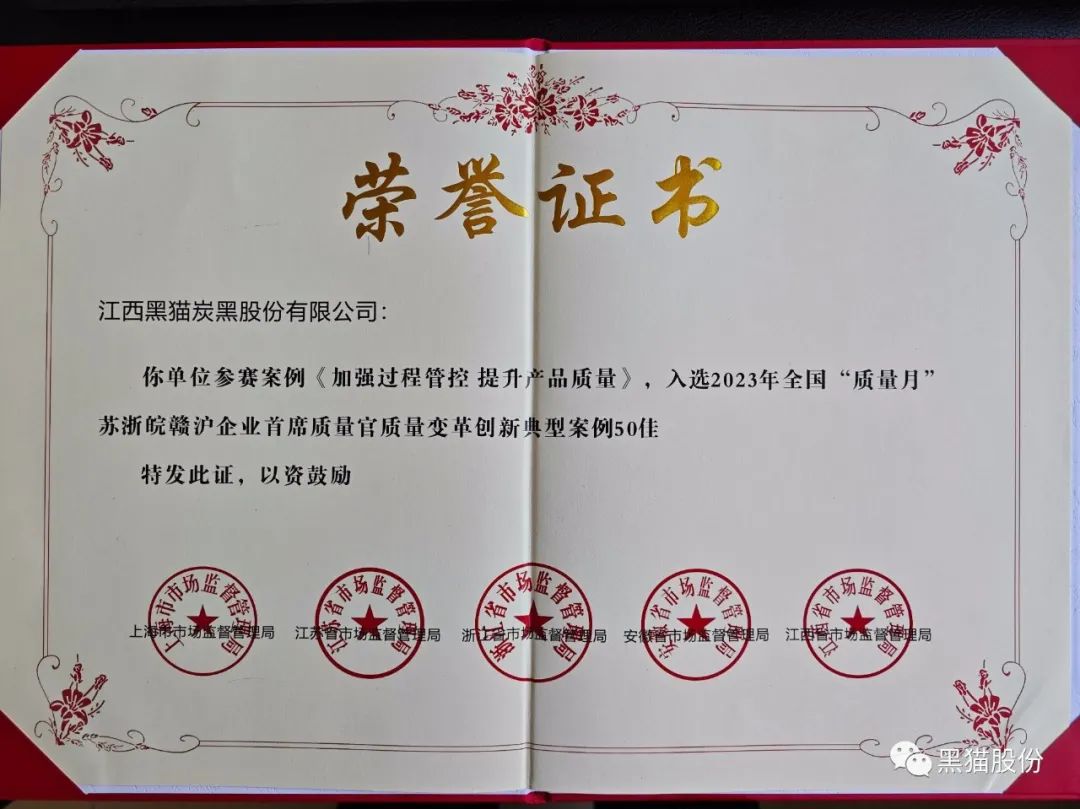 荣誉证书
江西黑猫炭黑股份有限公司：
你单位参赛案例《加强过程管控 提升产品质量》，入选2023年全国“质量月”
苏浙皖赣沪企业首席质量官质量变革创新典型案例50佳
特发此证，以资鼓励
上海市市场监督管理局 江苏省市场监督管理局 浙江省市场监督管理局 安徽省市场监督管理局 江西省市场监督管理局
上海市市场监督管理局
江苏省市场监督管理局
浙江省市场监督管理局
安徽省市场监督管理局
江西省市场监督管理局
黑猫股份